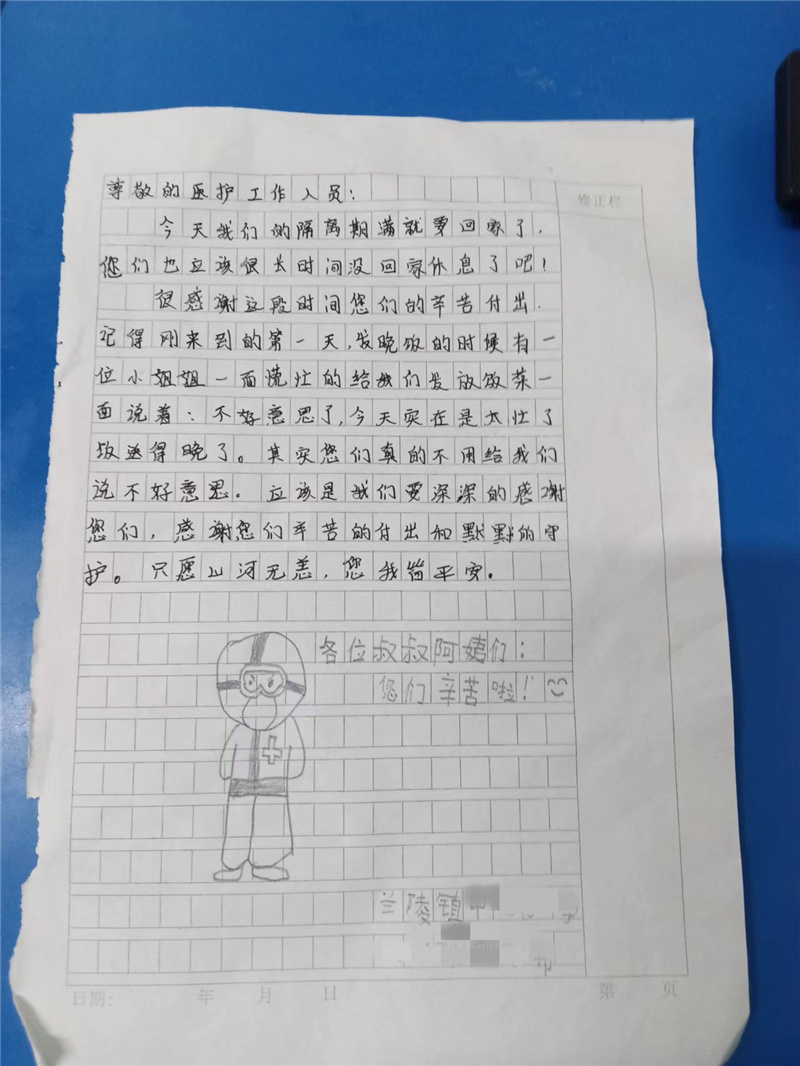 尊敬的医护工作人员:
今天我们的隔离期满就要回家了.
您们也应该很长时间没回家休息了吧!
很感谢这段时间您们的辛苦付出.
记得刚来到的第一天,发晚饭的时候有一
位小姐姐一面慌忙的给我们发放饭菜一
面说着:不好意思了,今天实在是太忙了
饭送得晚了。其实您们真的不用给我们
说不好意思.应该是我们要深深的感谢
您们,感谢您们辛苦的付出和默默的守
护。只愿山河无恙,您我皆平安.
各位叔叔阿姨们:
您们辛苦啦!
兰陵镇
修正栏
日期: 年 月 日 第 页